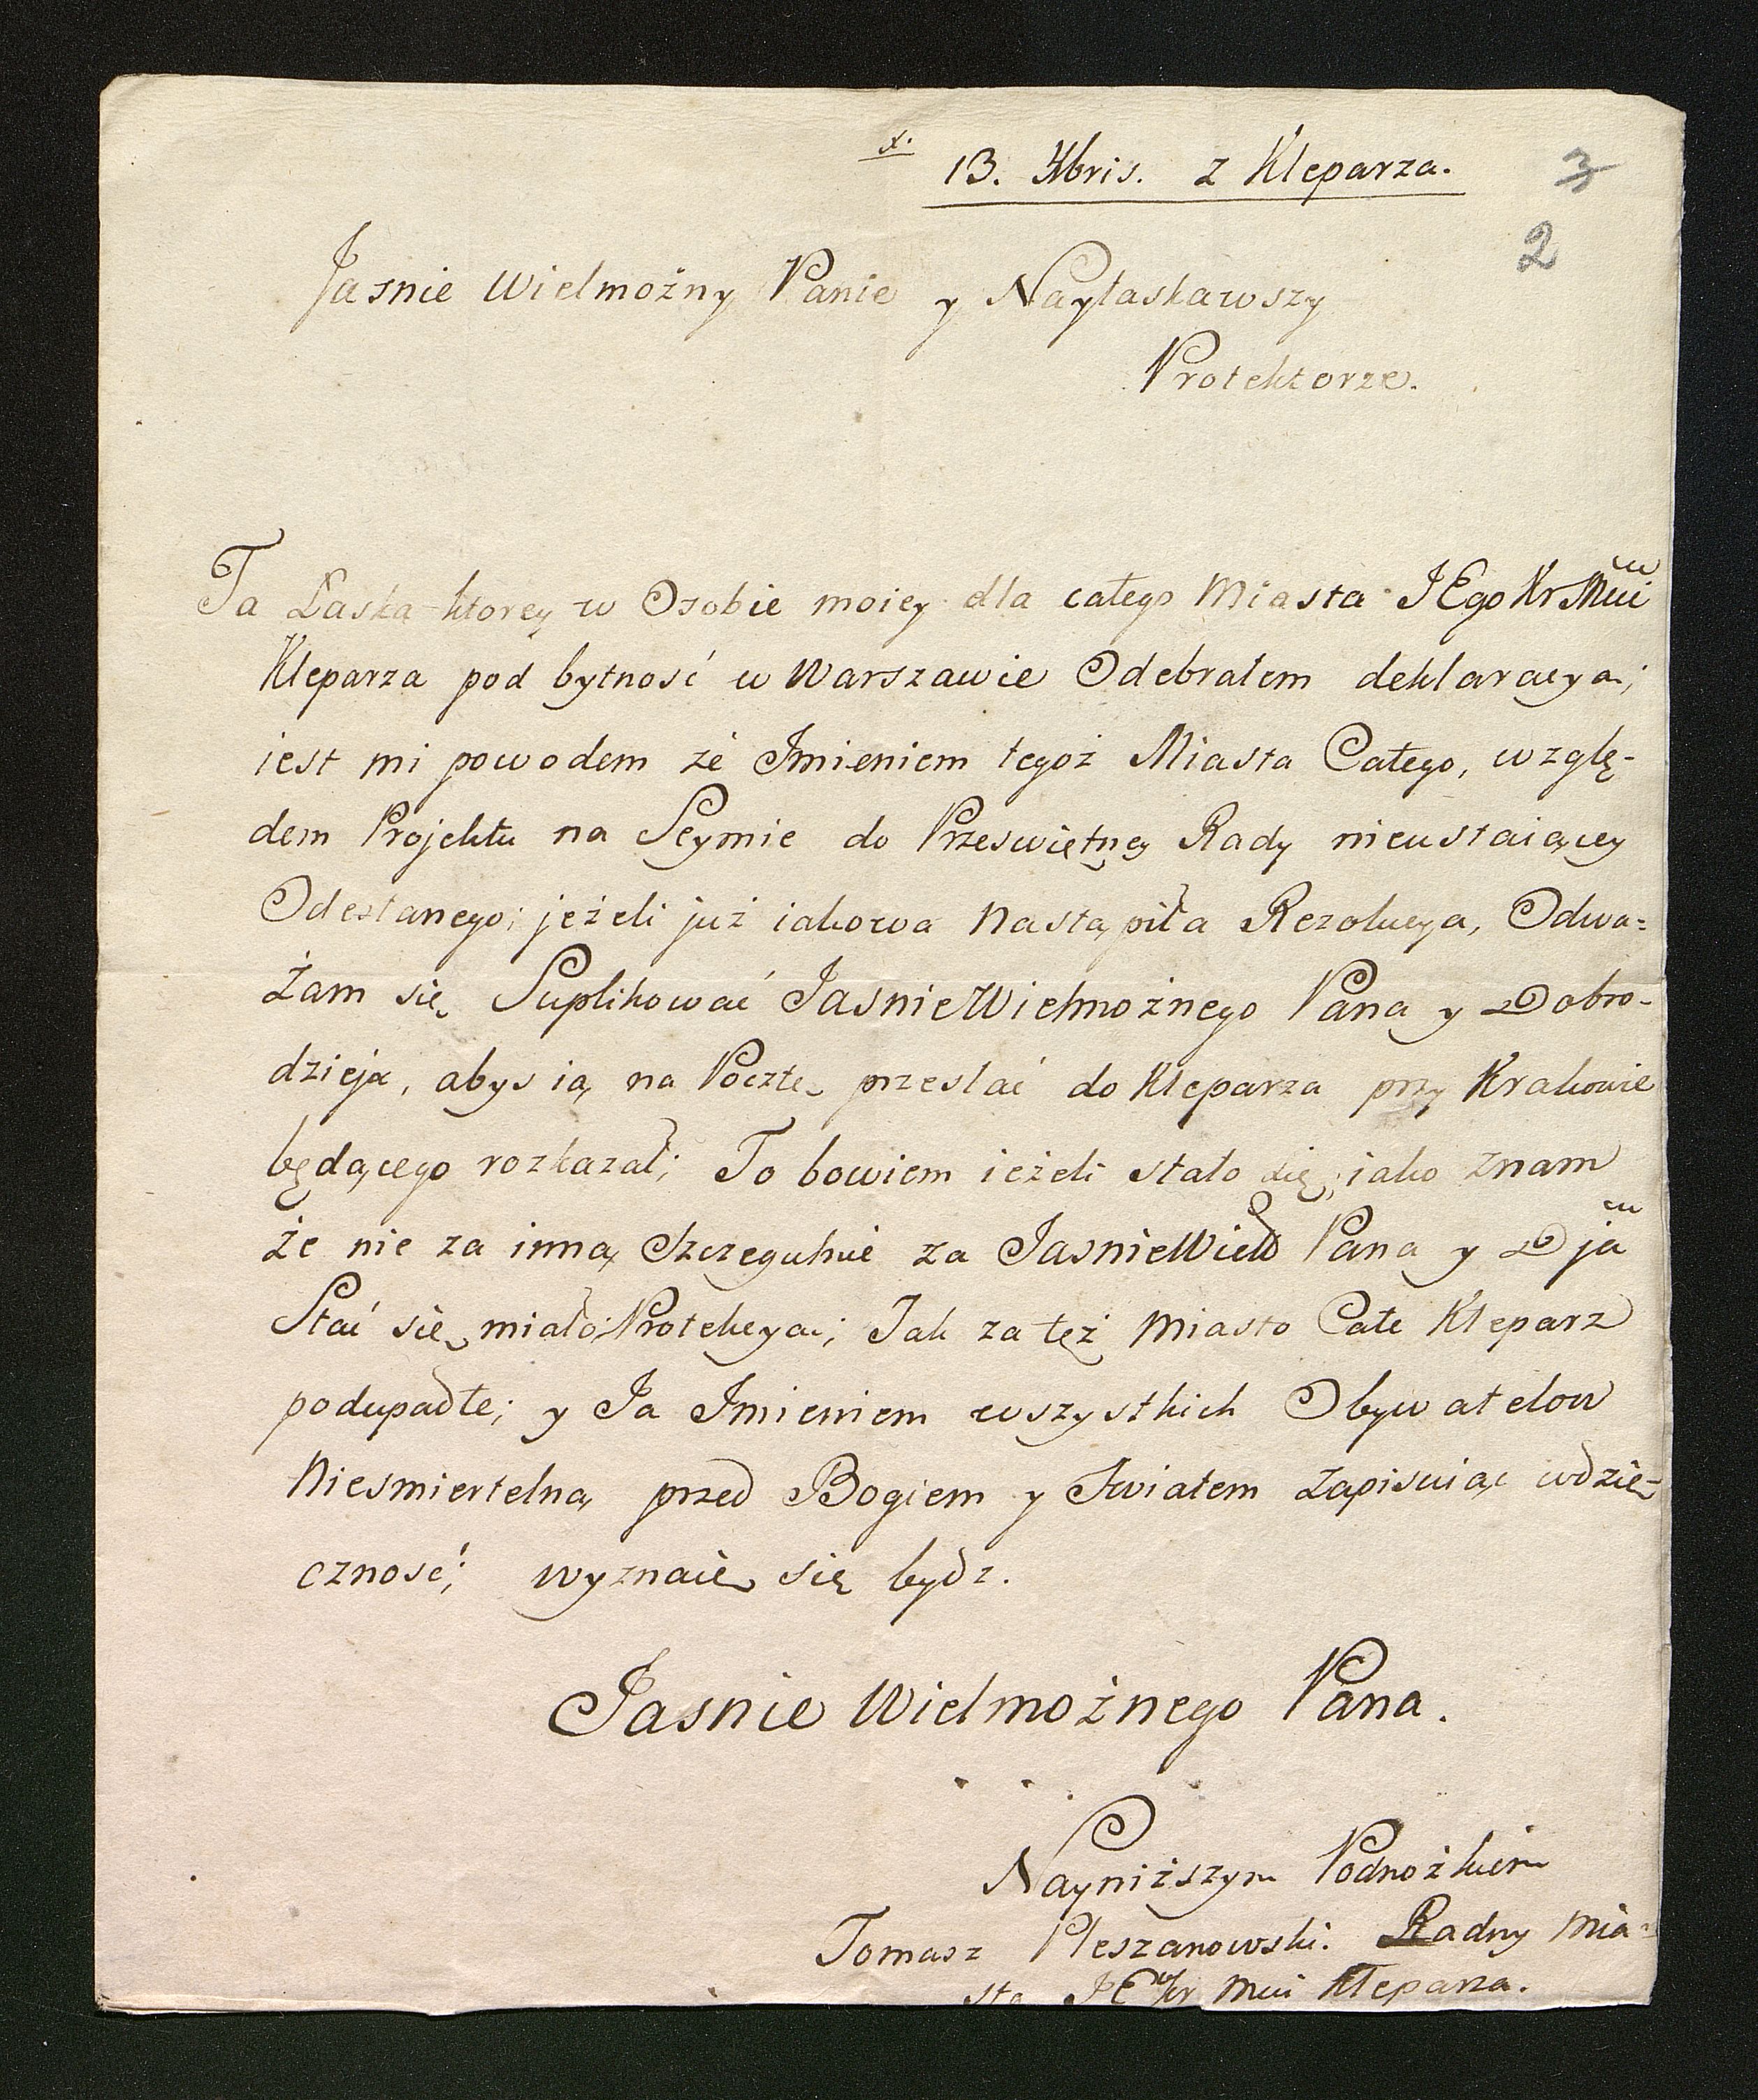 d.
13. Xbris. z Kleparza.
3
2
Jasnie Wielmożny Panie y Nayłaskawszy
Protektorze.
Ta Łaska ktorey w Osobie moiey dla całego Miasta JEgo Kr Mci
Kleparza pod bytność w Warszawie Odebrałem deklaracya;
iest mi powodem że Imieniem tegoż Miasta Całego, wzglę-
dem Projektu na Seymie do Przeswiętney Rady nieustaiącey
Odesłanego; jeżeli już iakowa Nastąpiła Rezolucya, Odwa=
żam się Suplikować JasnieWielmożnego Pana y Dobro-
dzieja, abys ią na Pocztę przesłać do Kleparza przy Krakowie
będącego rozkazał; To bowiem ieżeli stało się, iako znam
że nie za inną Szczegulnie za JasnieWiel Pana y D ja
Stać się miało Protekcyą; Jak za też Miasto Całe Kleparz
podupadłe; y Ja Imieniem wszystkich Obywatelow
Niesmiertelną przed Bogiem y Swiatem Zapisuiąc wdzię-
czność; wyznaię się bydz.
Jasnie Wielmożnego Pana.
Nayniższym Podnożkiem
Tomasz Pleszanowski. Radny Mia-
sta JE Kr Mci Kleparza.